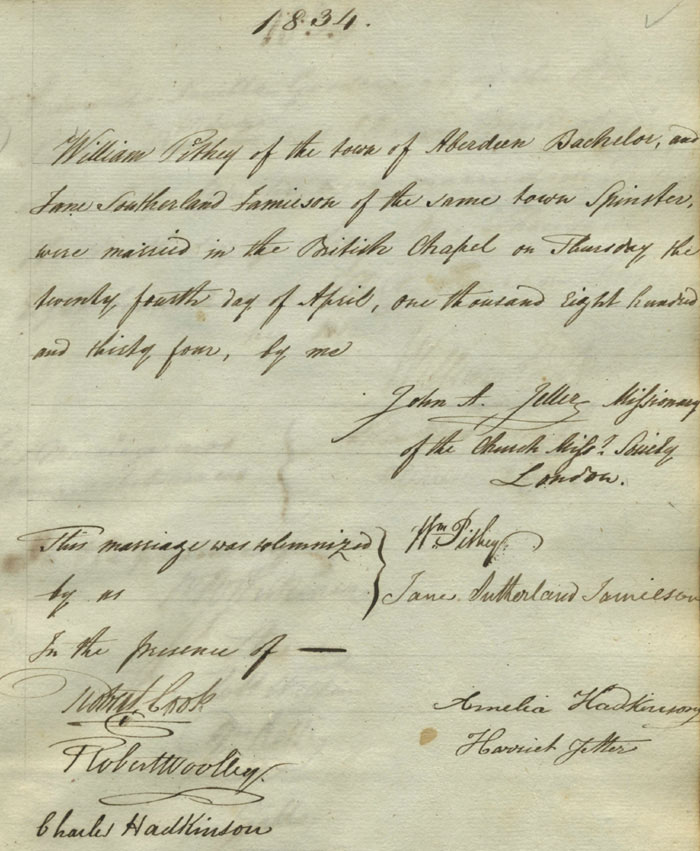 1834.
William Pithey of the town of Aberdeen Bachelor, and
Jane Southerland Jamieson of the same town Spinster,
were married in the British Chapel on Thursday the
twenty fourth day of April, one thousand Eight hundred
and thirty four, by me
John A. Jetter Missionary
of the Church Missy Society
London.
This marriage was solemnized
by us
Wm Pithey
Jane Sutherland Jamieson
In the presence of —
Robert Cook
Amelia Hadkinson
Harriet Jetter
Robert Woolley
Charles Hadkinson